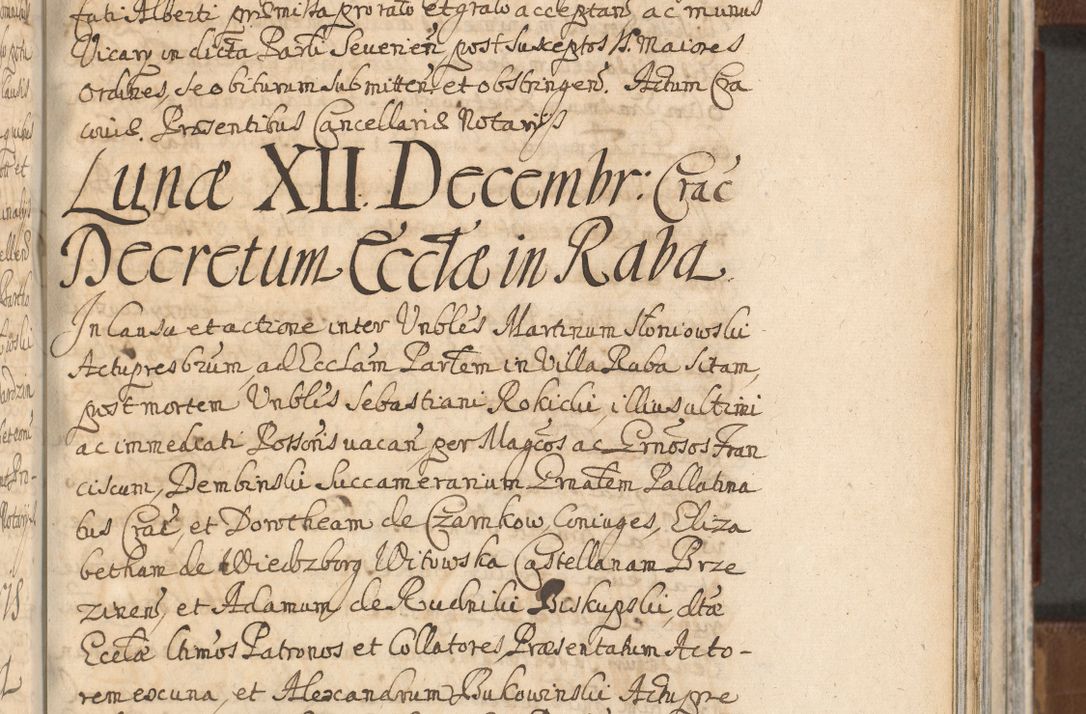 fati Alberti prœmissa pro rato et grato acceptan̄ ac munus
Vicarÿ in dicta Parli Severien̄ post susceptos S. Maiores
Ordines, se obiturum submitten̄ et obstringen̄. Actum Cra
coviē. Præsentibus Cancellariē Notarÿs
Lunæ XII. Decembr: Crac̄
Decretum Eccłæ in Raba
In Causa et actione inter Vnbłes Martinum Słoniowski
Actupresbrūm, ad Eccłam Partem in Villa Raba sitam,
post mortem Vnbłis Sebastiani Rokicki, illius ultimi
ac immediati Possoris vacan̄, per Magcos ac Grnosos Fran
ciscum, Dembinski Succamerarium Grnałem Pallatina
tus Crac̄, et Dorotheam de Czarnkow, Coniuges, Eliza
betham de Wiedzborg Witowska Castellanam Brze
zinen̄, et Adamum de Rudniki Biskupski, dtæ
Eccłæ Ctimos Patronos et Collatores, Præsentatum Acto-
rem ex una, et Alexandrum Bukowinski Actupre